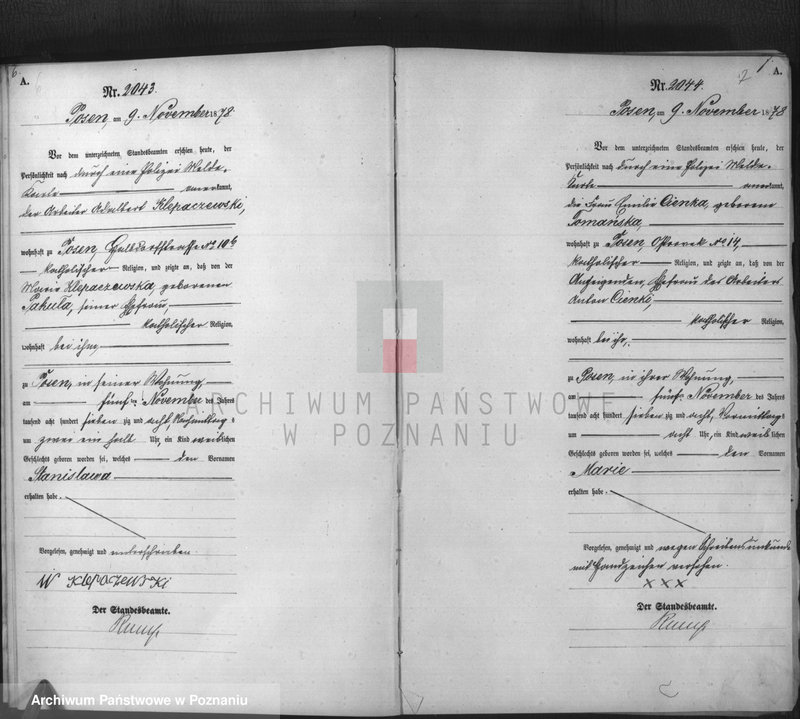 6.
A.
Nr. 2043.
Posen, am 9. November 1878
Vor dem unterzeichneten Standesbeamten erschien heute, der
Persönlichkeit nach durch eine Polizei Melde-
Karte anerkannt,
der Arbeiter Adalbert Klepaczewski,
wohnhaft zu Posen, Halbdorfstrasse No 10b
katholischer Religion, und zeigte an, daß von der
Marie Klepaczewska, geborenen
Pakula, seiner Ehefrau,
katholischer Religion,
wohnhaft bei ihm,
zu Posen, in seiner Wohnung
am fünf ten November des Jahres
tausend acht hundert sieben zig und acht Nachmittags
um zwei ein halb Uhr, ein Kind weiblichen
Geschlechts geboren worden sei, welches den Vornamen
Stanislawa
erhalten habe.
Vorgelesen, genehmigt und unterschrieben.
W Klepaczewski
Der Standesbeamte.
A.
Nr. 2044.
Posen, am 9. November 1878
Vor dem unterzeichneten Standesbeamten erschien heute, der
Persönlichkeit nach durch eine Polizei Melde-
Karte anerkannt,
die Frau Emilie Cienka, geborene
Tomańska,
wohnhaft zu Posen, Ostrowek No 14,
katholischer Religion, und zeigte an, daß von der
Anzeigenden, Ehefrau des Arbeiters
Anton Cienki,
katholischer Religion,
wohnhaft bei ihr,
zu Posen, in ihrer Wohnung,
am fünf ten November des Jahres
tausend acht hundert sieben zig und acht, Vormittags
um acht Uhr, ein Kind weiblichen
Geschlechts geboren worden sei, welches den Vornamen
Marie
erhalten habe.
Vorgelesen, genehmigt und wegen Schreibensunkunde
mit Handzeichen versehen.
x x x
Der Standesbeamte.
ARCHIWUM PAŃSTWOWE
W POZNANIU
Archiwum Państwowe w Poznaniu